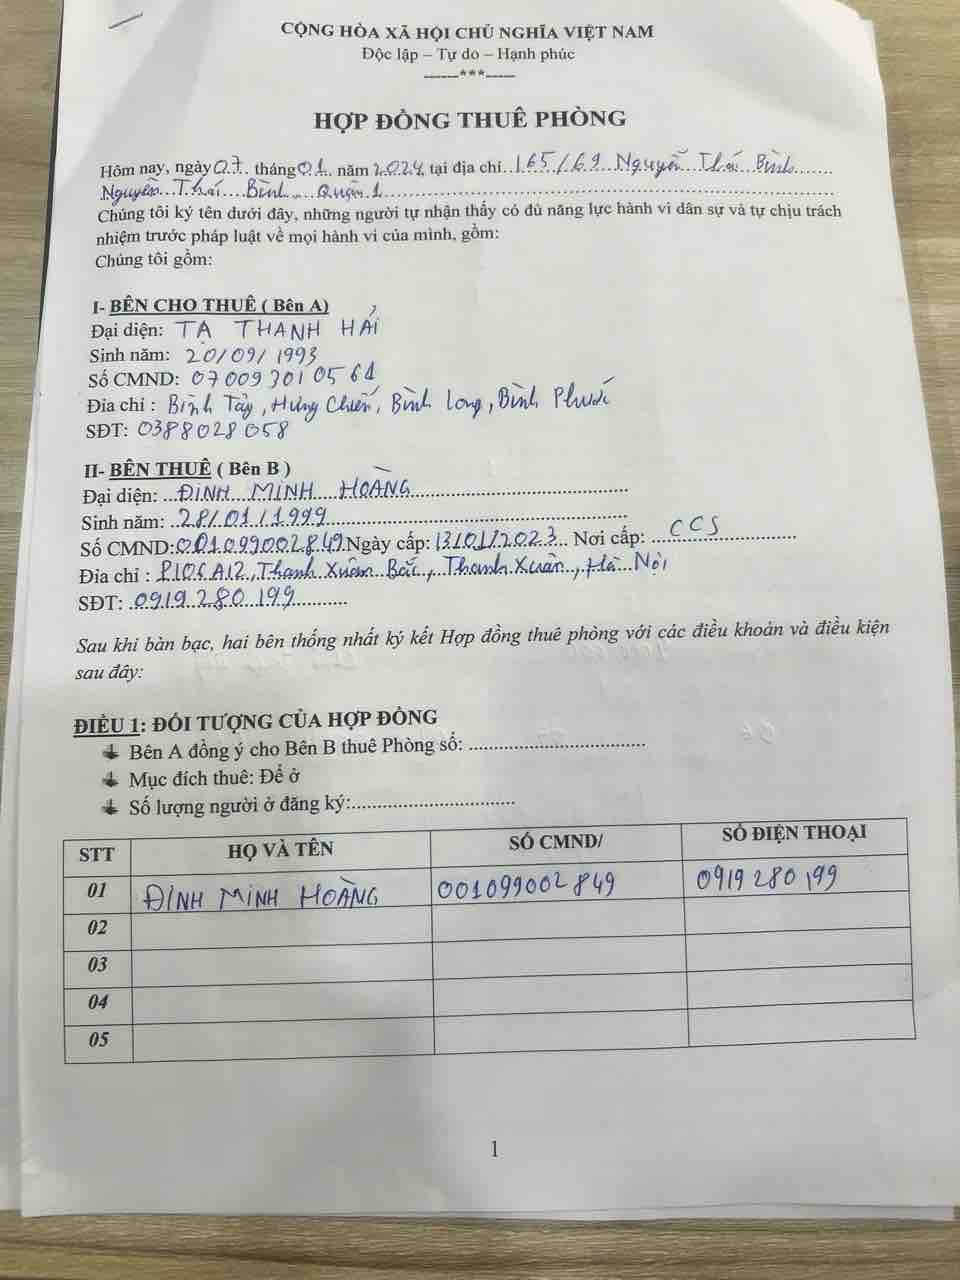 CỘNG HÒA XÃ HỘI CHỦ NGHĨA VIỆT NAM
Độc lập – Tự do – Hạnh phúc
------***-----
HỢP ĐỒNG THUÊ PHÒNG
Hôm nay, ngày 07 tháng 01 năm 2024 tại địa chỉ 165/69 Nguyễn Thái Bình
Nguyễn Thái Bình, Quận 1
Chúng tôi ký tên dưới đây, những người tự nhận thấy có đủ năng lực hành vi dân sự và tự chịu trách
nhiệm trước pháp luật về mọi hành vi của mình, gồm:
Chúng tôi gồm:
I- BÊN CHO THUÊ ( Bên A)
Đại diện: TẠ THANH HẢI
Sinh năm: 20/09/1993
Số CMND: 070093010561
Đia chỉ : Bình Tây, Hưng Chiến, Bình Long, Bình Phước
SĐT: 0388028058
II- BÊN THUÊ ( Bên B )
Đại diện: ĐINH MINH HOÀNG
Sinh năm: 28/01/1999
Số CMND: 001099002849 Ngày cấp: 13/01/2023 Nơi cấp: CCS
Đia chỉ : P106 A12, Thanh Xuân Bắc, Thanh Xuân, Hà Nội
SĐT: 0919 280 199
Sau khi bàn bạc, hai bên thống nhất ký kết Hợp đồng thuê phòng với các điều khoản và điều kiện
sau đây:
ĐIỀU 1: ĐỐI TƯỢNG CỦA HỢP ĐỒNG
Bên A đồng ý cho Bên B thuê Phòng số: ................................
Mục đích thuê: Để ở
Số lượng người ở đăng ký:..............................
STT HỌ VÀ TÊN SỐ CMND/ SỐ ĐIỆN THOẠI
01 ĐINH MINH HOÀNG 001099002849 0919 280 199
02
03
04
05
1